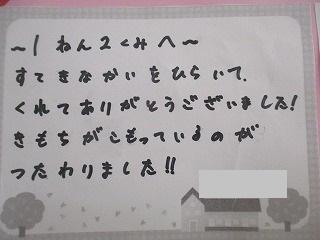 ～1ねん2くみへ～
すてきなかいをひらいて、
くれてありがとうございました!
きもちがこもっているのが
つたわりました!!